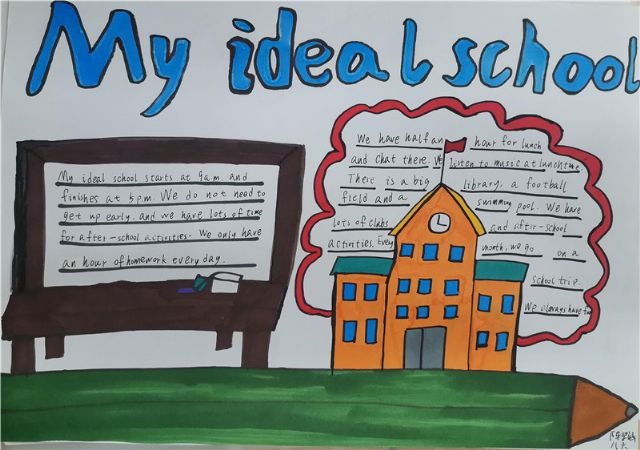 My ideal school
My ideal school starts at 9a.m. and
finishes at 5pm We do not need to
get up early. and we have lots of time
for after-school activities. We only have
an hour of homework every day.
We have half an hour for lunch
and chat there. We listen to music at lunchtime
There is a big library, a football
field and a swimming pool. We have
lots of clubs and after-school
activities. Every month, we go on a
school trip.
We always have fun
八六